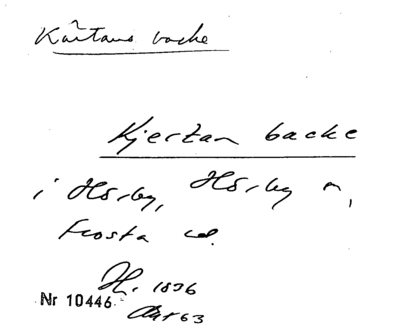 Kärtans backe
Kjerstan backe
i Hörby, Hörby sn,
Frosta hd.
H. 1836
Nr 10446
Akt 63